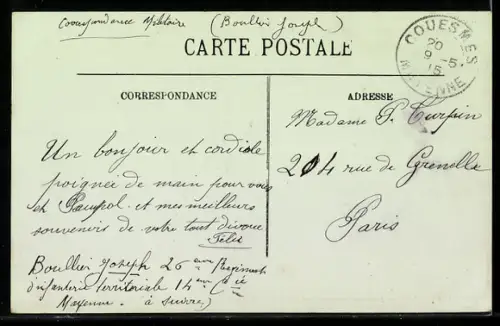 Correspondance Militaire (Boullier Joseph)
CARTE POSTALE
COUESMES
20
9 -5
15
MAYENNE
CORRESPONDANCE
ADRESSE
Madame P. Turpin
204 rue de Grenelle
Paris
Un bonjour et cordiale
poignée de main pour vous
et Paupol et mes meilleurs
souvenirs de votre tout
Félix
Boullier Joseph 26 eme Regiment
d'infanterie territoriale 14 eme Cie
Mayenne. à suivre)